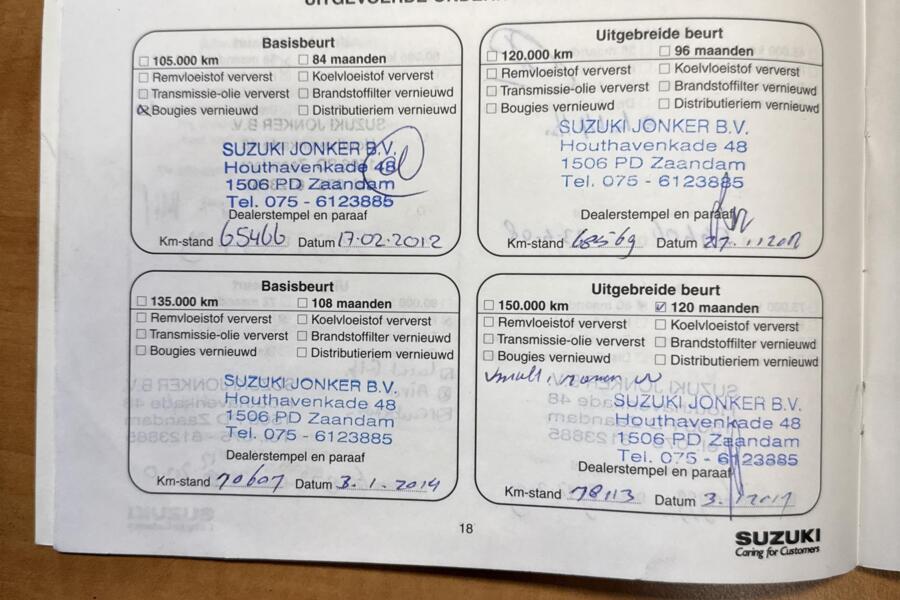 Basisbeurt
☐ 105.000 km ☐ 84 maanden
☐ Remvloeistof ververst ☐ Koelvloeistof ververst
☐ Transmissie-olie ververst ☐ Brandstoffilter vernieuwd
☒ Bougies vernieuwd ☐ Distributieriem vernieuwd
SUZUKI JONKER B.V.
Houthavenkade 48
1506 PD Zaandam
Tel. 075 - 6123885
Dealerstempel en paraaf
Km-stand 65466 Datum 17.02.2012
Uitgebreide beurt
☐ 120.000 km ☐ 96 maanden
☐ Remvloeistof ververst ☐ Koelvloeistof ververst
☐ Transmissie-olie ververst ☐ Brandstoffilter vernieuwd
☐ Bougies vernieuwd ☐ Distributieriem vernieuwd
SUZUKI JONKER B.V.
Houthavenkade 48
1506 PD Zaandam
Tel. 075 - 6123885
Dealerstempel en paraaf
Km-stand 68569 Datum
Basisbeurt
☐ 135.000 km ☐ 108 maanden
☐ Remvloeistof ververst ☐ Koelvloeistof ververst
☐ Transmissie-olie ververst ☐ Brandstoffilter vernieuwd
☐ Bougies vernieuwd ☐ Distributieriem vernieuwd
SUZUKI JONKER B.V.
Houthavenkade 48
1506 PD Zaandam
Tel. 075 - 6123885
Dealerstempel en paraaf
Km-stand 70607 Datum 3.1.2014
Uitgebreide beurt
☐ 150.000 km ☑ 120 maanden
☐ Remvloeistof ververst ☐ Koelvloeistof ververst
☐ Transmissie-olie ververst ☐ Brandstoffilter vernieuwd
☐ Bougies vernieuwd ☐ Distributieriem vernieuwd
SUZUKI JONKER B.V.
Houthavenkade 48
1506 PD Zaandam
Tel. 075 - 6123885
Dealerstempel en paraaf
Km-stand 78113 Datum
18
SUZUKI
Caring for Customers